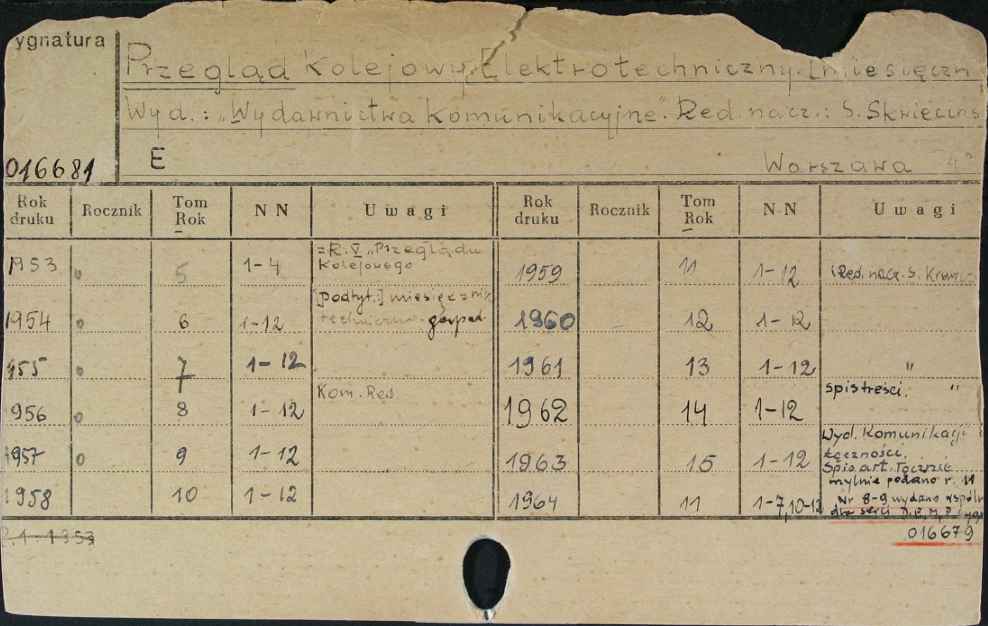 ygnatura
Przegląd Kolejowy Elektrotechniczny [miesięczn
Wyd.: "Wydawnictwa Komunikacyjne". Red. nacz.: S. Skwięcińs
016681 E Warszawa 4°
Rok druku Rocznik Tom Rok NN Uwagi Rok druku Rocznik Tom Rok NN Uwagi
1953 5 1-4 =R.V "Przeglądu Kolejowego 1959 11 1-12 Red. nacz. S.
1954 6 1-12 [podtyt.] miesięcznik techniczno-gospod. 1960 12 1-12
955 7 1-12 1961 13 1-12 "
956 8 1-12 Kom. Red 1962 14 1-12 spis treści. "
1957 9 1-12 1963 15 1-12 Wyd. Komunikacji i Łączności. Spis art. łącznie
1958 10 1-12 1964 11 1-7,10-12 mylnie podano r. 11 Nr 8-9 wydano wspóln dla serii
2.1.1953 016679